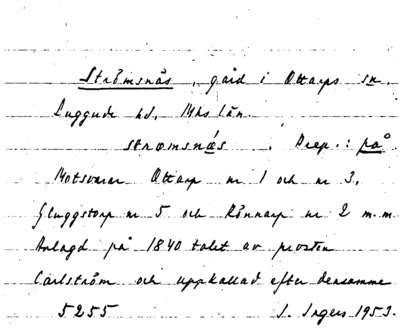 Strömsnås, gård i Ottarps sn
Luggude hd. Mhs län.
stromsnås. Prep.: på
Motsvarar Ottarp nr 1 och nr 3,
Gluggstorp nr 5 och Rönnarp nr 2 m.m
Anlagd på 1840 talet av prosten
Carlström och uppkallad efter densamme
5255 I. Ingers 1953.